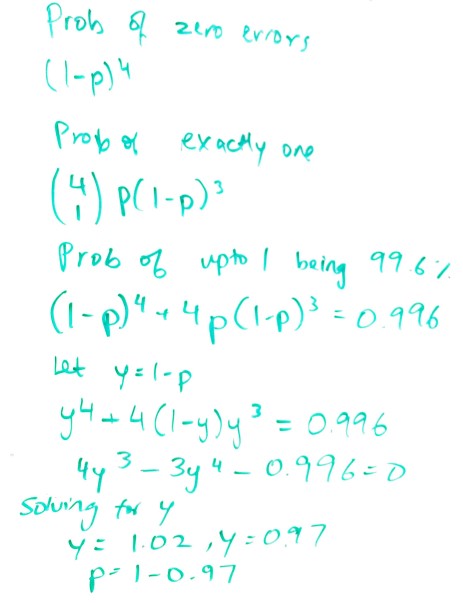 Prob of zero errors
(1-p)⁴
Prob of exactly one
(4 1) p(1-p)³
Prob of upto 1 being 99.6%
(1-p)⁴ + 4p(1-p)³ = 0.996
Let y=1-p
y⁴ + 4(1-y)y³ = 0.996
4y³ - 3y⁴ - 0.996=0
Solving for y
y = 1.02, y = 0.97
p = 1-0.97